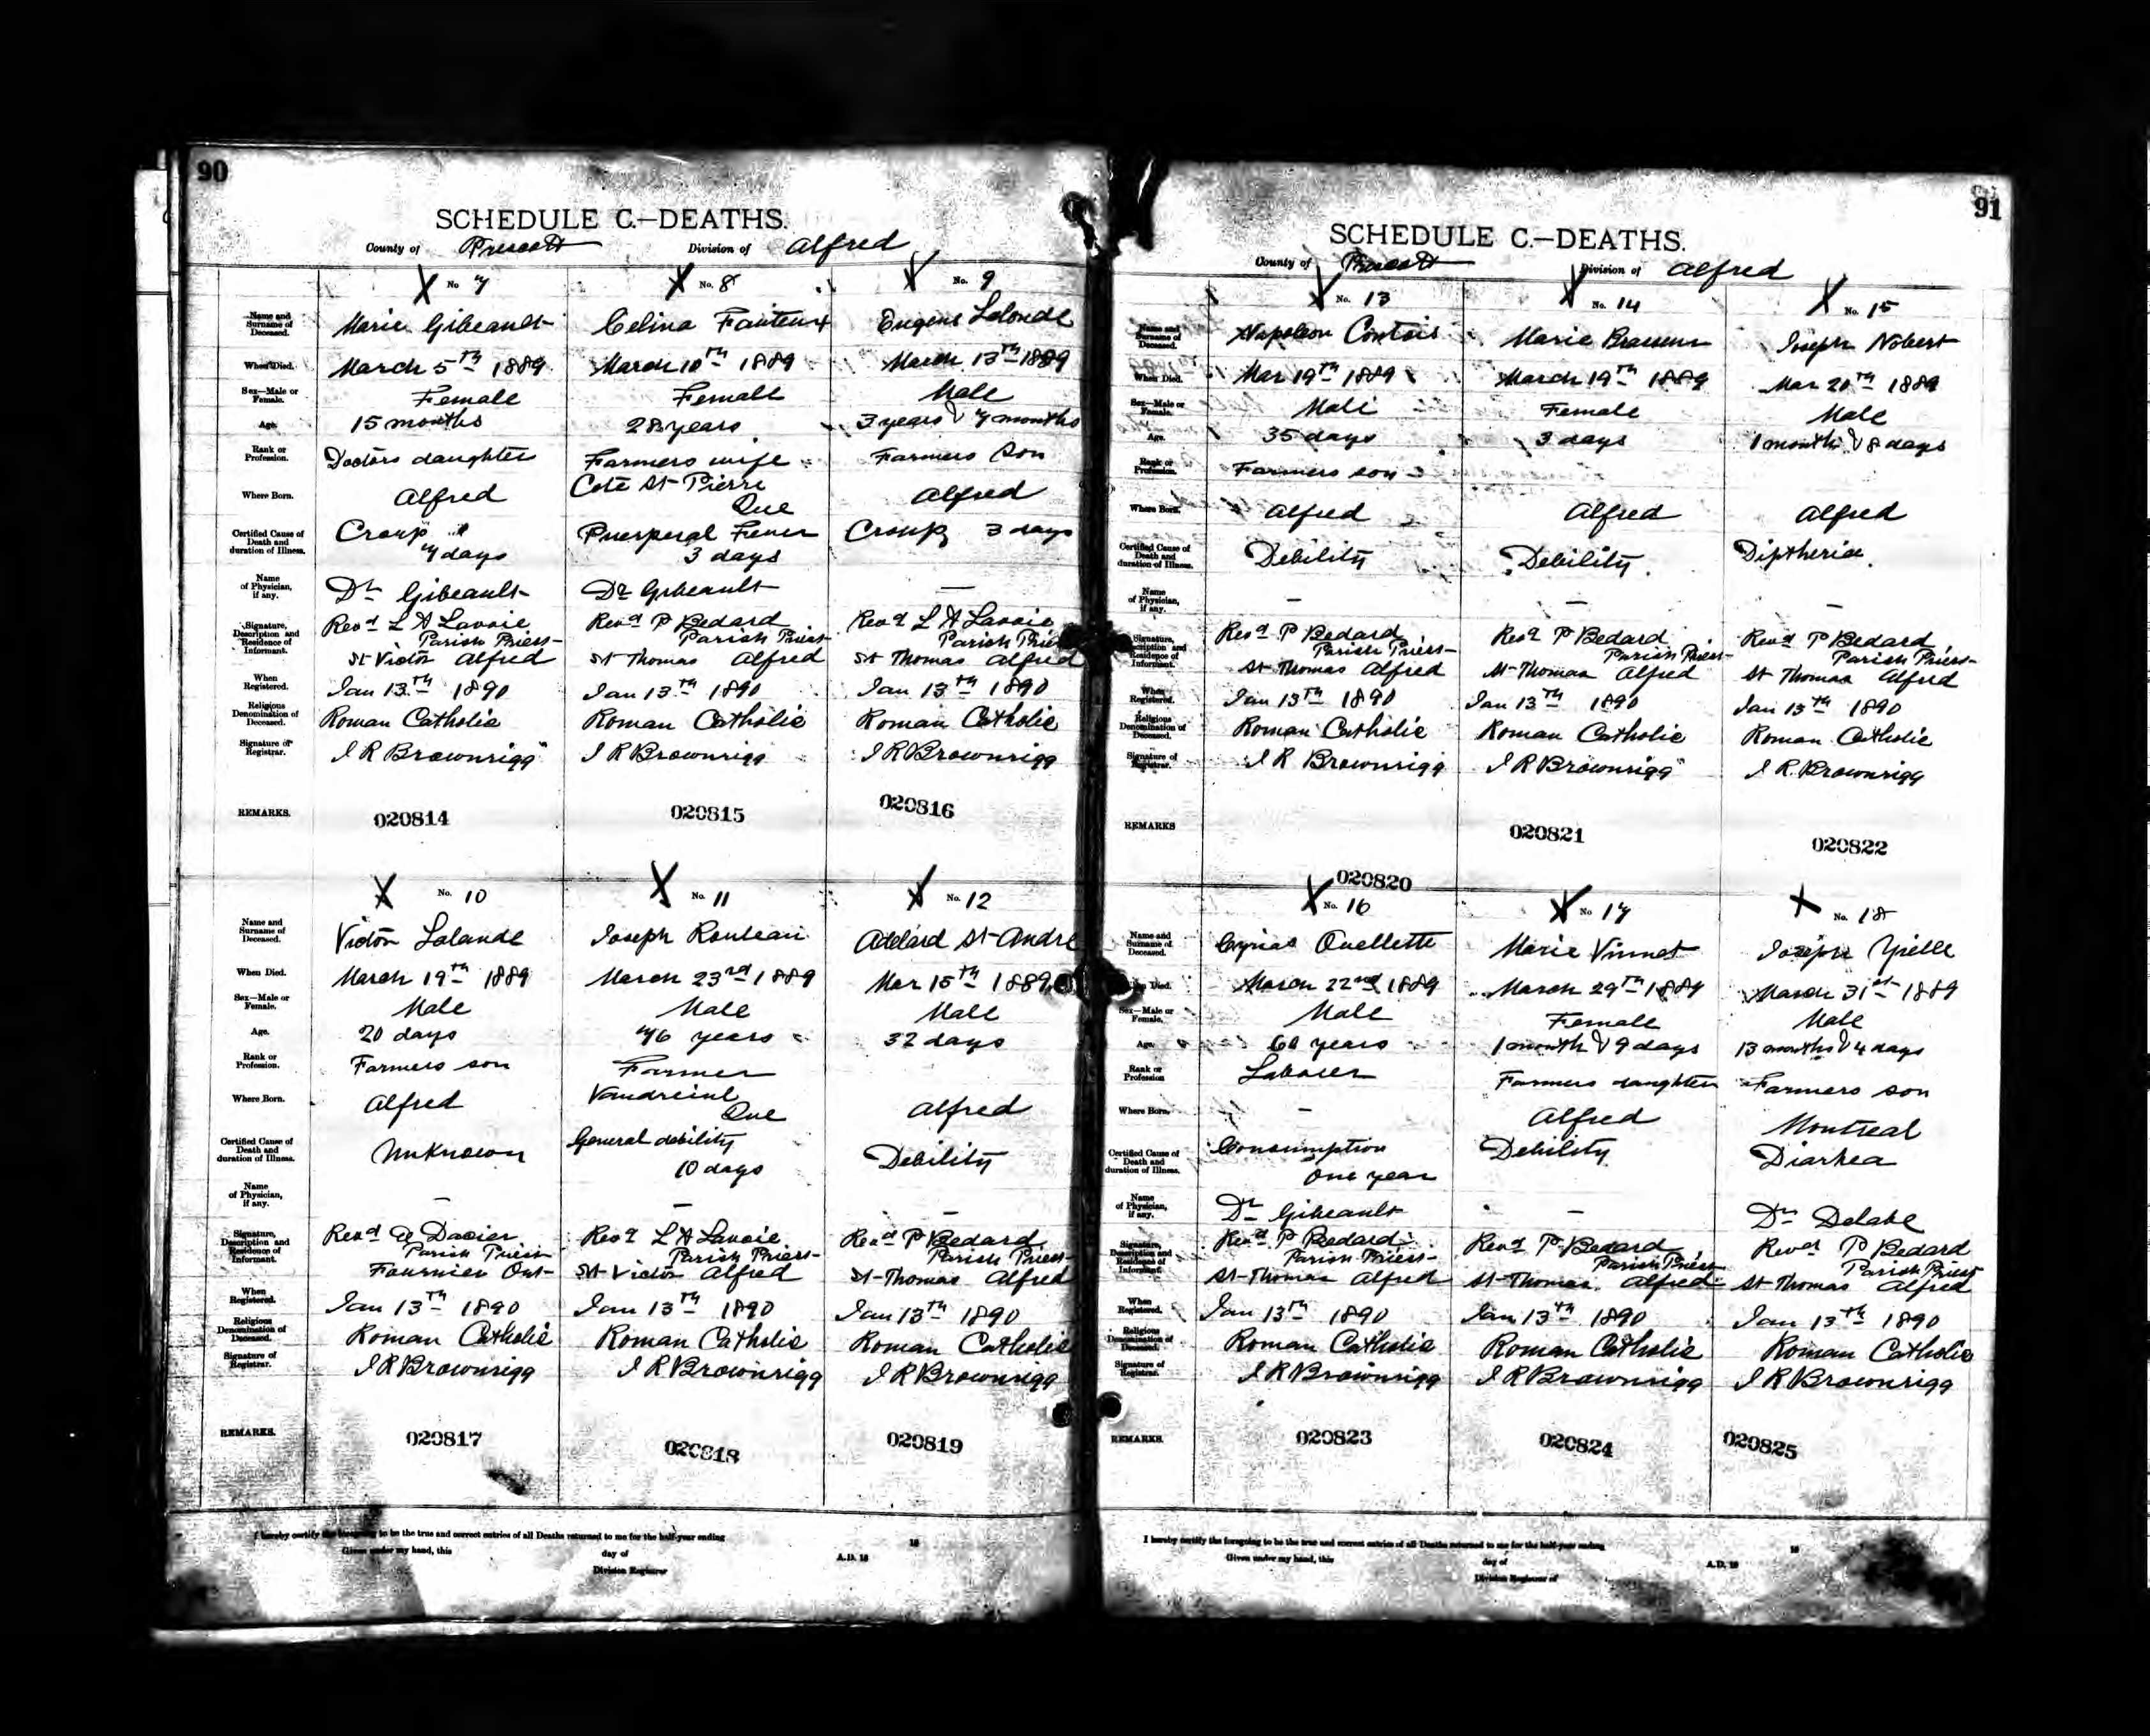 90
SCHEDULE C.—DEATHS.
County of Prescott Division of Alfred
No 7
Name and Surname of Deceased. Marie Gibeault
When Died. March 5th 1889
Sex—Male or Female. Female
Age. 15 months
Rank or Profession. Doctors daughter
Where Born. Alfred
Certified Cause of Death and duration of Illness. Croup
7 days
Name of Physician, if any. Dr Gibeault
Signature, Description and Residence of Informant. Revd L A Lavoie
Parish Priest
St Victor Alfred
When Registered. Jan 13th 1890
Religious Denomination of Deceased. Roman Catholic
Signature of Registrar. J R Brownrigg
REMARKS. 020814
No. 8
Celina Fauteux
March 10th 1889
Female
28 years
Farmers wife
Cote St-Pierre
Que
Puerperal Fever
3 days
Dr Gibeault
Revd P Bedard
Parish Priest
St Thomas Alfred
Jan 13th 1890
Roman Catholic
J R Brownrigg
020815
No. 9
Eugene Lalonde
March 13th 1889
Male
3 years & 7 months
Farmers Son
Alfred
Croup 3 days
—
Revd L A Lavoie
Parish Prie
St Thomas Alfred
Jan 13th 1890
Roman Catholic
J R Brownrigg
020816
No. 10
Name and Surname of Deceased. Victor Lalande
When Died. March 19th 1889
Sex—Male or Female. Male
Age. 20 days
Rank or Profession. Farmers son
Where Born. Alfred
Certified Cause of Death and duration of Illness. Unknown
Name of Physician, if any. —
Signature, Description and Residence of Informant. Revd
Parish Priest
Fournier Ont
When Registered. Jan 13th 1890
Religious Denomination of Deceased. Roman Catholic
Signature of Registrar. J R Brownrigg
REMARKS. 020817
No. 11
Joseph Rouleau
March 23rd 1889
Male
76 years
Farmer
Vaudreuil
Que
General debility
10 days
—
Revd L A Lavoie
Parish Priest
St-Victor Alfred
Jan 13th 1890
Roman Catholic
J R Brownrigg
020818
No. 12
Adelard St-Andre
Mar 15th 1889
Male
32 days
Alfred
Debility
Revd P Bedard
Parish Priest
St-Thomas Alfred
Jan 13th 1890
Roman Catholic
J R Brownrigg
020819
I hereby certify the foregoing to be the true and correct entries of all Deaths returned to me for the half-year ending 18
Given under my hand, this day of A.D. 18
Division Registrar
91
SCHEDULE C.—DEATHS.
County of Prescott Division of Alfred
No. 13
Name and Surname of Deceased. Napoleon Contois
When Died. Mar 19th 1889
Sex—Male or Female. Male
Age. 35 days
Rank or Profession. Farmers son
Where Born. Alfred
Certified Cause of Death and duration of Illness. Debility
Name of Physician, if any. —
Signature, Description and Residence of Informant. Revd P Bedard
Parish Priest
St Thomas Alfred
When Registered. Jan 13th 1890
Religious Denomination of Deceased. Roman Catholic
Signature of Registrar. J R Brownrigg
REMARKS
020820
No. 14
Marie Brasseur
March 19th 1889
Female
3 days
Alfred
Debility
—
Revd P Bedard
Parish Priest
St-Thomas Alfred
Jan 13th 1890
Roman Catholic
J R Brownrigg
020821
No. 15
Joseph Nobert
Mar 20th 1889
Male
1 month & 8 days
Alfred
Diptheria
—
Revd P Bedard
Parish Priest
St Thomas Alfred
Jan 13th 1890
Roman Catholic
J R Brownrigg
020822
No. 16
Name and Surname of Deceased. Cyrias Ouellette
When Died. March 22nd 1889
Sex—Male or Female. Male
Age. 60 years
Rank or Profession Laborer
Where Born. —
Certified Cause of Death and duration of Illness. Consumption
one year
Name of Physician, if any. Dr Gibeault
Signature, Description and Residence of Informant. Revd P Bedard
Parish Priest
St-Thomas Alfred
When Registered. Jan 13th 1890
Religious Denomination of Deceased. Roman Catholic
Signature of Registrar. J R Brownrigg
REMARKS. 020823
No 17
Marie Vinnet
March 29th 1889
Female
1 month & 9 days
Farmers daughter
Alfred
Debility
—
Revd P Bedard
Parish Priest
St-Thomas Alfred
Jan 13th 1890
Roman Catholic
J R Brownrigg
020824
No. 18
Joseph
March 31st 1889
Male
13 months & 4 days
Farmers son
Montreal
Diarhea
Dr Delabe
Revd P Bedard
Parish Priest
St Thomas Alfred
Jan 13th 1890
Roman Catholic
J R Brownrigg
020825
I hereby certify the foregoing to be the true and correct entries of all Deaths returned to me for the half-year ending 18
Given under my hand, this day of A.D. 18
Division Registrar of